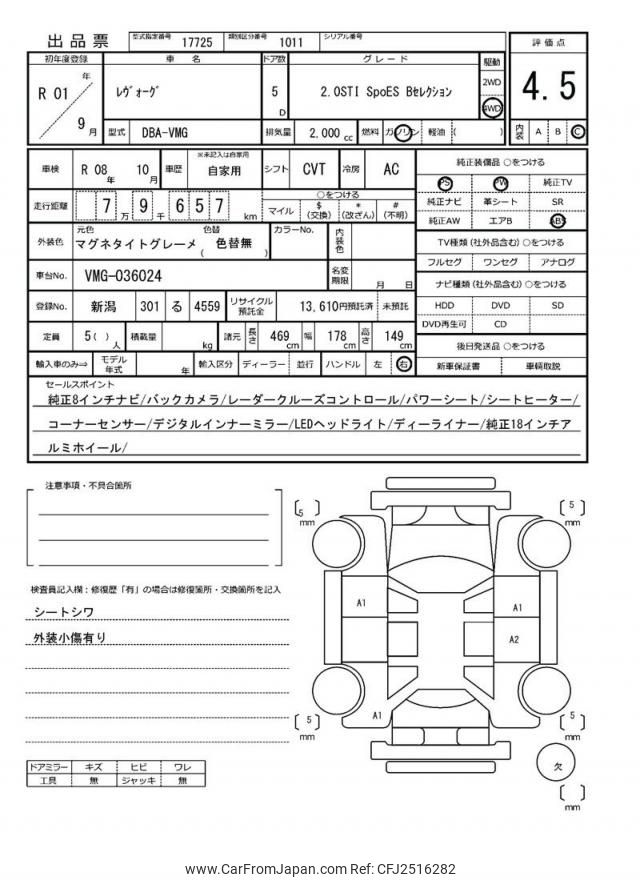 出品票 型式指定番号 17725 類別区分番号 1011 シリアル番号
初年度登録 車 名 ドア数 グレード 駆動 評価点
R 01 年 9 月 ﾚｳﾞｫｰｸﾞ 5 D 2.0STI SpoES Bｾﾚｸｼｮﾝ 2WD 4WD 4.5
型式 DBA-VMG 排気量 2.000 cc 燃料 ガソリン 軽油 ( ) 内装 A B C
車検 R 08 年 10 月 車歴 ※未記入は自家用 自家用 シフト CVT 冷房 AC
純正装備品 ○をつける
PS PW 純正TV
純正ナビ 革シート SR
純正AW エアB ABS
走行距離 7 万 9 千 6 5 7 km
○をつける
マイル $ (交換) * (改ざん) # (不明)
外装色 元色 マグネタイトグレーメ 色替 ( 色替無 ) カラーNo. 内装色
TV種類 (社外品含む) ○をつける
フルセグ ワンセグ アナログ
車台No. VMG-036024 名変期限 月 日
ナビ種類 (社外品含む) ○をつける
HDD DVD SD
DVD再生可 CD
登録No. 新潟 301 る 4559 リサイクル預託金 13,610円預託済 未預託
定員 5 ( ) 人 積載量 kg 諸元 長さ 469 cm 幅 178 cm 高さ 149 cm
後日発送品 ○をつける
新車保証書 車輌取説
輸入車のみ⇒ モデル年式 年 輸入区分 ディーラー 並行 ハンドル 左 右
セールスポイント
純正8インチナビ/バックカメラ/レーダークルーズコントロール/パワーシート/シートヒーター/
コーナーセンサー/デジタルインナーミラー/LEDヘッドライト/ディーライナー/純正18インチア
ルミホイール/
注意事項・不具合箇所
検査員記入欄：修復歴「有」の場合は修復箇所・交換箇所を記入
シートシワ
外装小傷有り
ドアミラー キズ ヒビ ワレ
工具 無 ジャッキ 無
5 mm
5 mm
A1
A1
A2
A1
5 mm
5 mm
欠
mm
www.CarFromJapan.com Ref: CFJ2516282